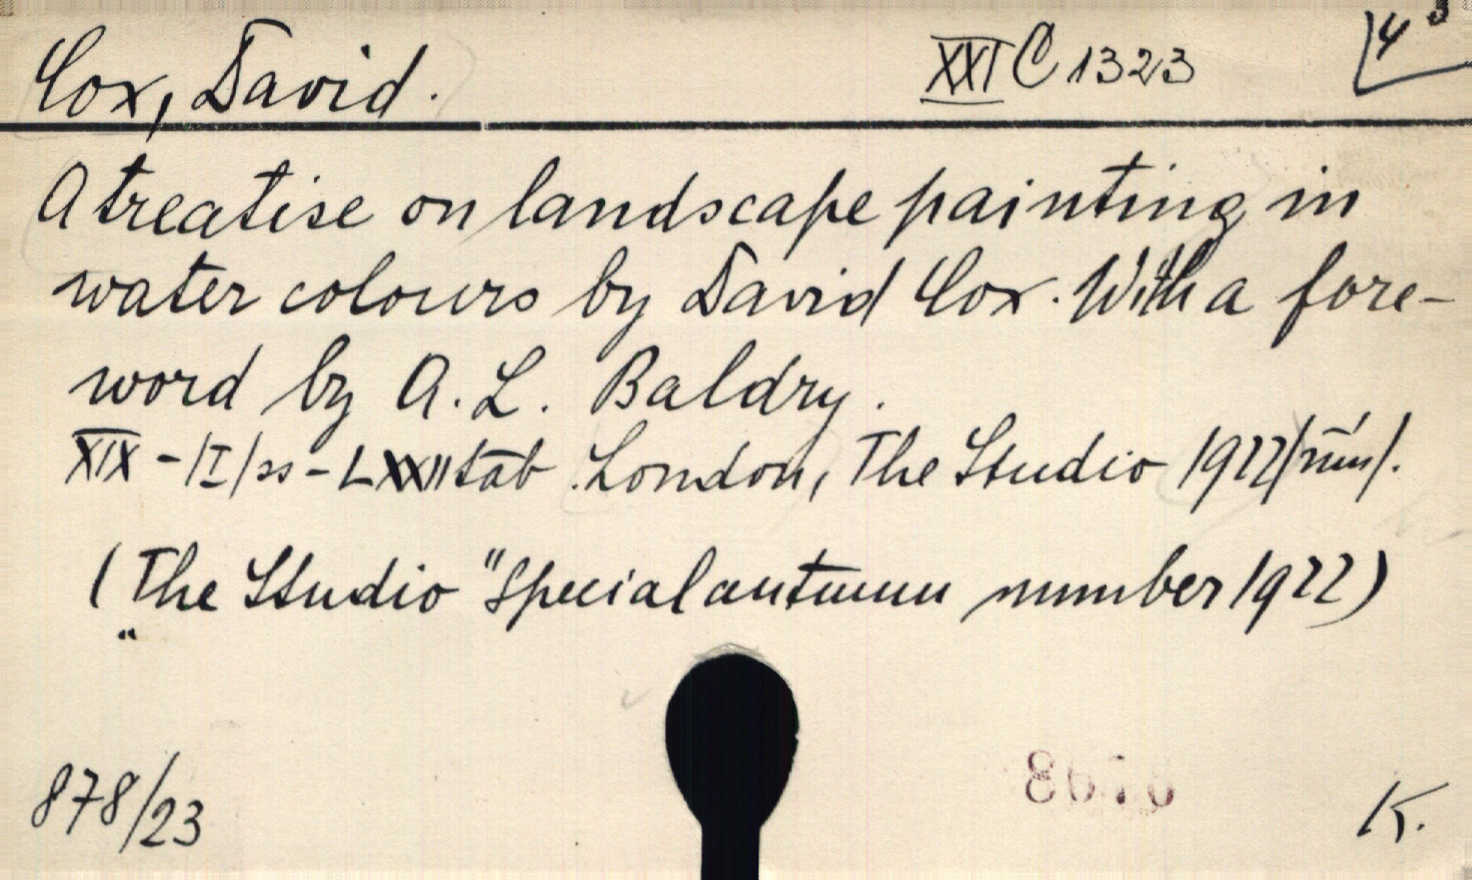 Cox, David. XXI C 1323 4°
A treatise on landscape painting in
water colours by David Cox. With a fore-
word by A. L. Baldry.
XIX - /I/ ss - LXXII tab. London, The Studio 1922
(The Studio "Special autumn number 1922)
"
878/23 K.